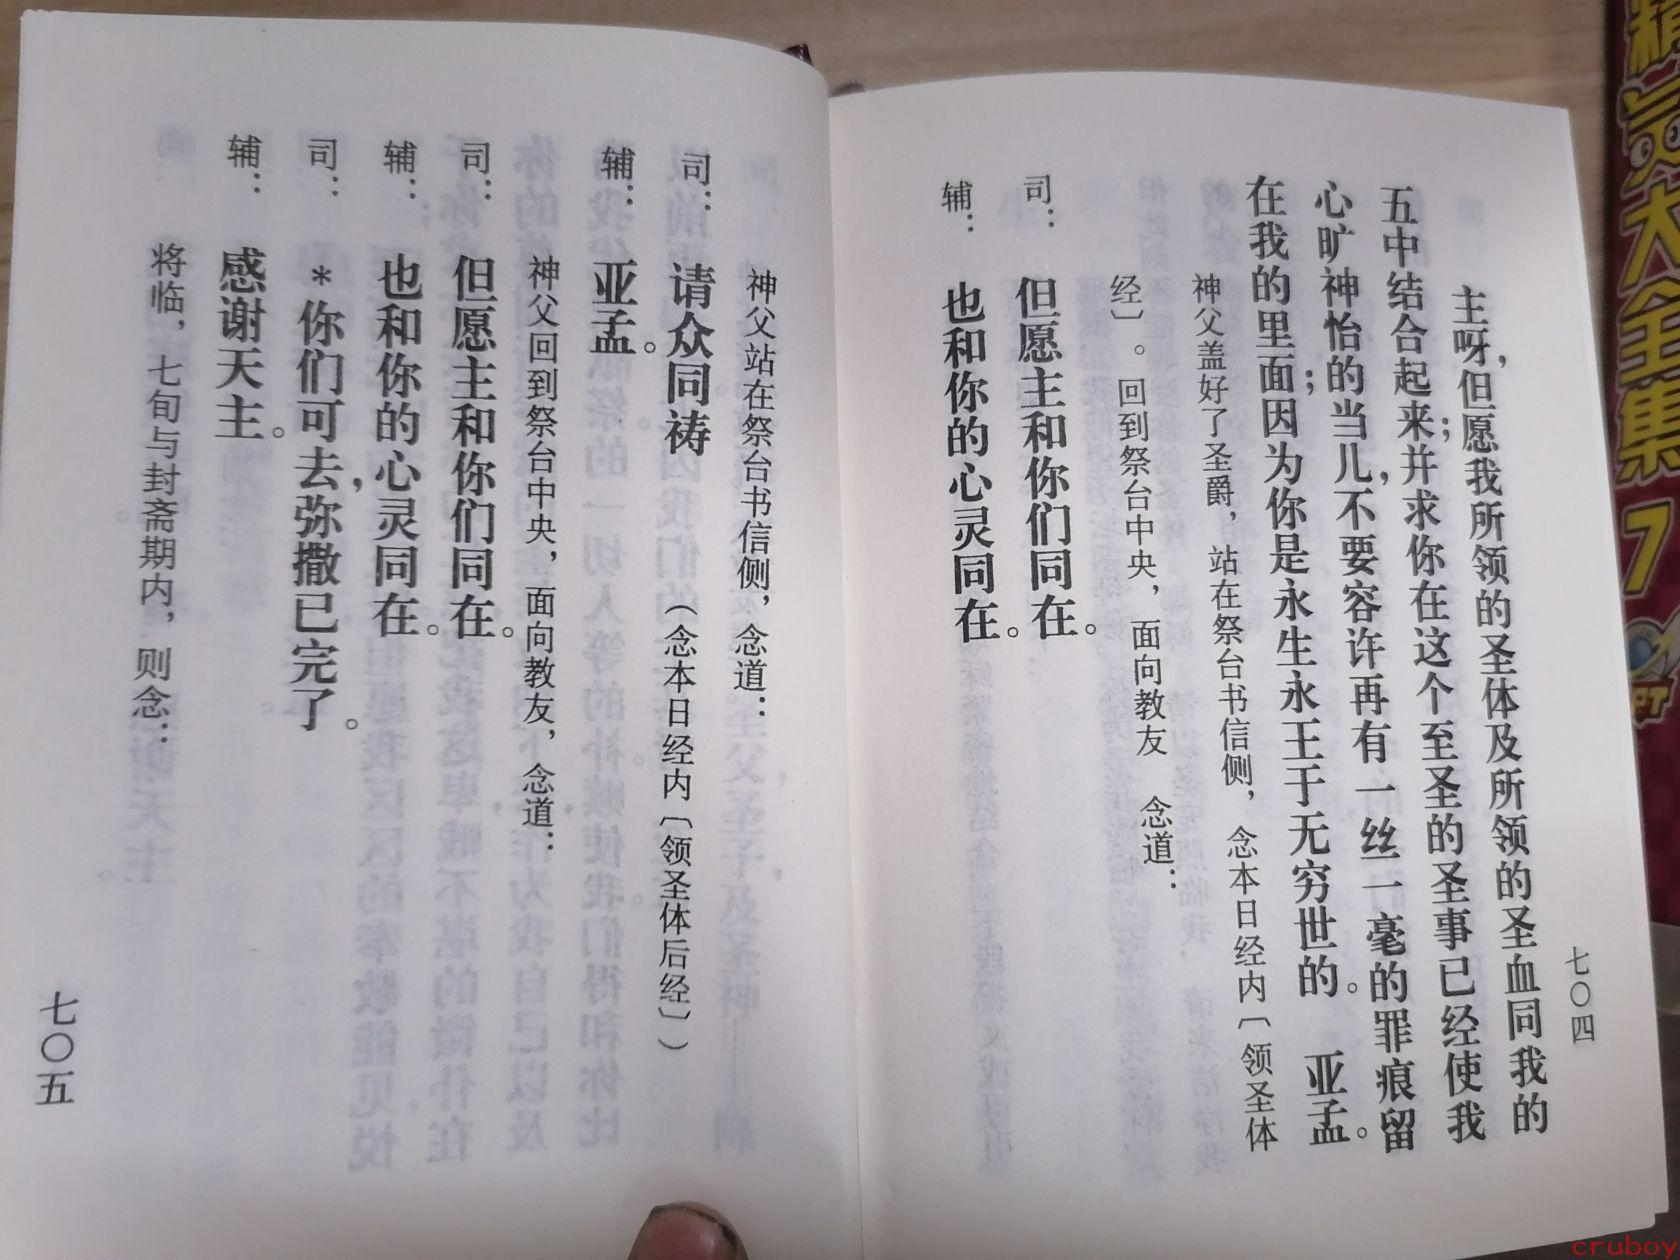 七〇四
主呀，但愿我所领的圣体及所领的圣血同我的
五中结合起来；并求你在这个至圣的圣事已经使我
心旷神怡的当儿，不要容许再有一丝一毫的罪痕留
在我的里面；因为你是永生永王于无穷世的。亚孟。
神父盖好了圣爵，站在祭台书信侧，念本日经内〔领圣体
经〕。回到祭台中央，面向教友 念道：
司：但愿主和你们同在。
辅：也和你的心灵同在。
神父站在祭台书信侧，念道：
司：请众同祷（念本日经内〔领圣体后经〕）
辅：亚孟。
神父回到祭台中央，面向教友，念道：
司：但愿主和你们同在。
辅：也和你的心灵同在。
司：*你们可去，弥撒已完了。
辅：感谢天主。
将临，七旬与封斋期内，则念：
七〇五
精灵大全集7
cruboy